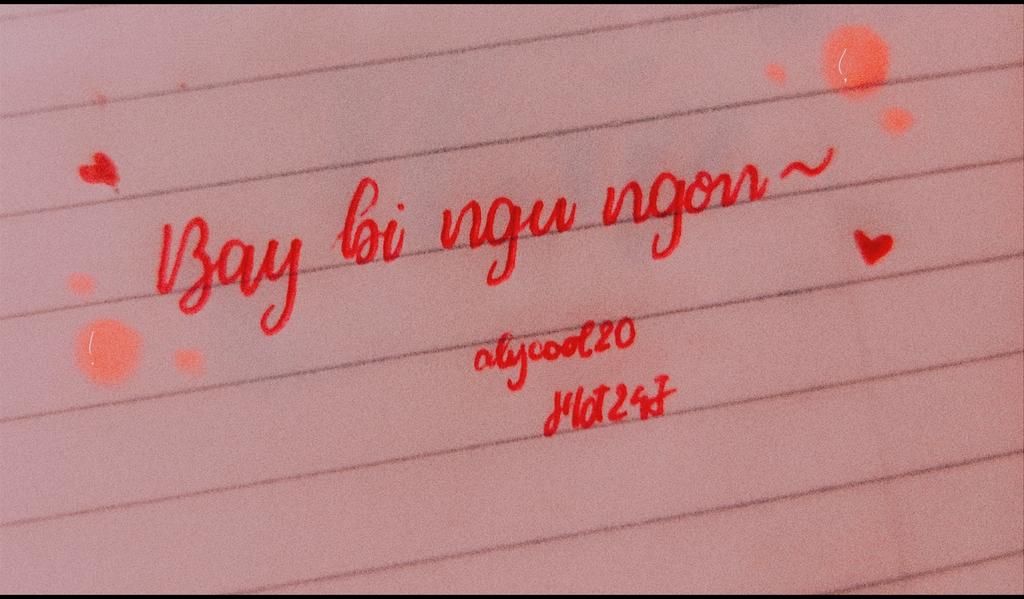 Bay bi ngu ngon~
alycool20
Hot247